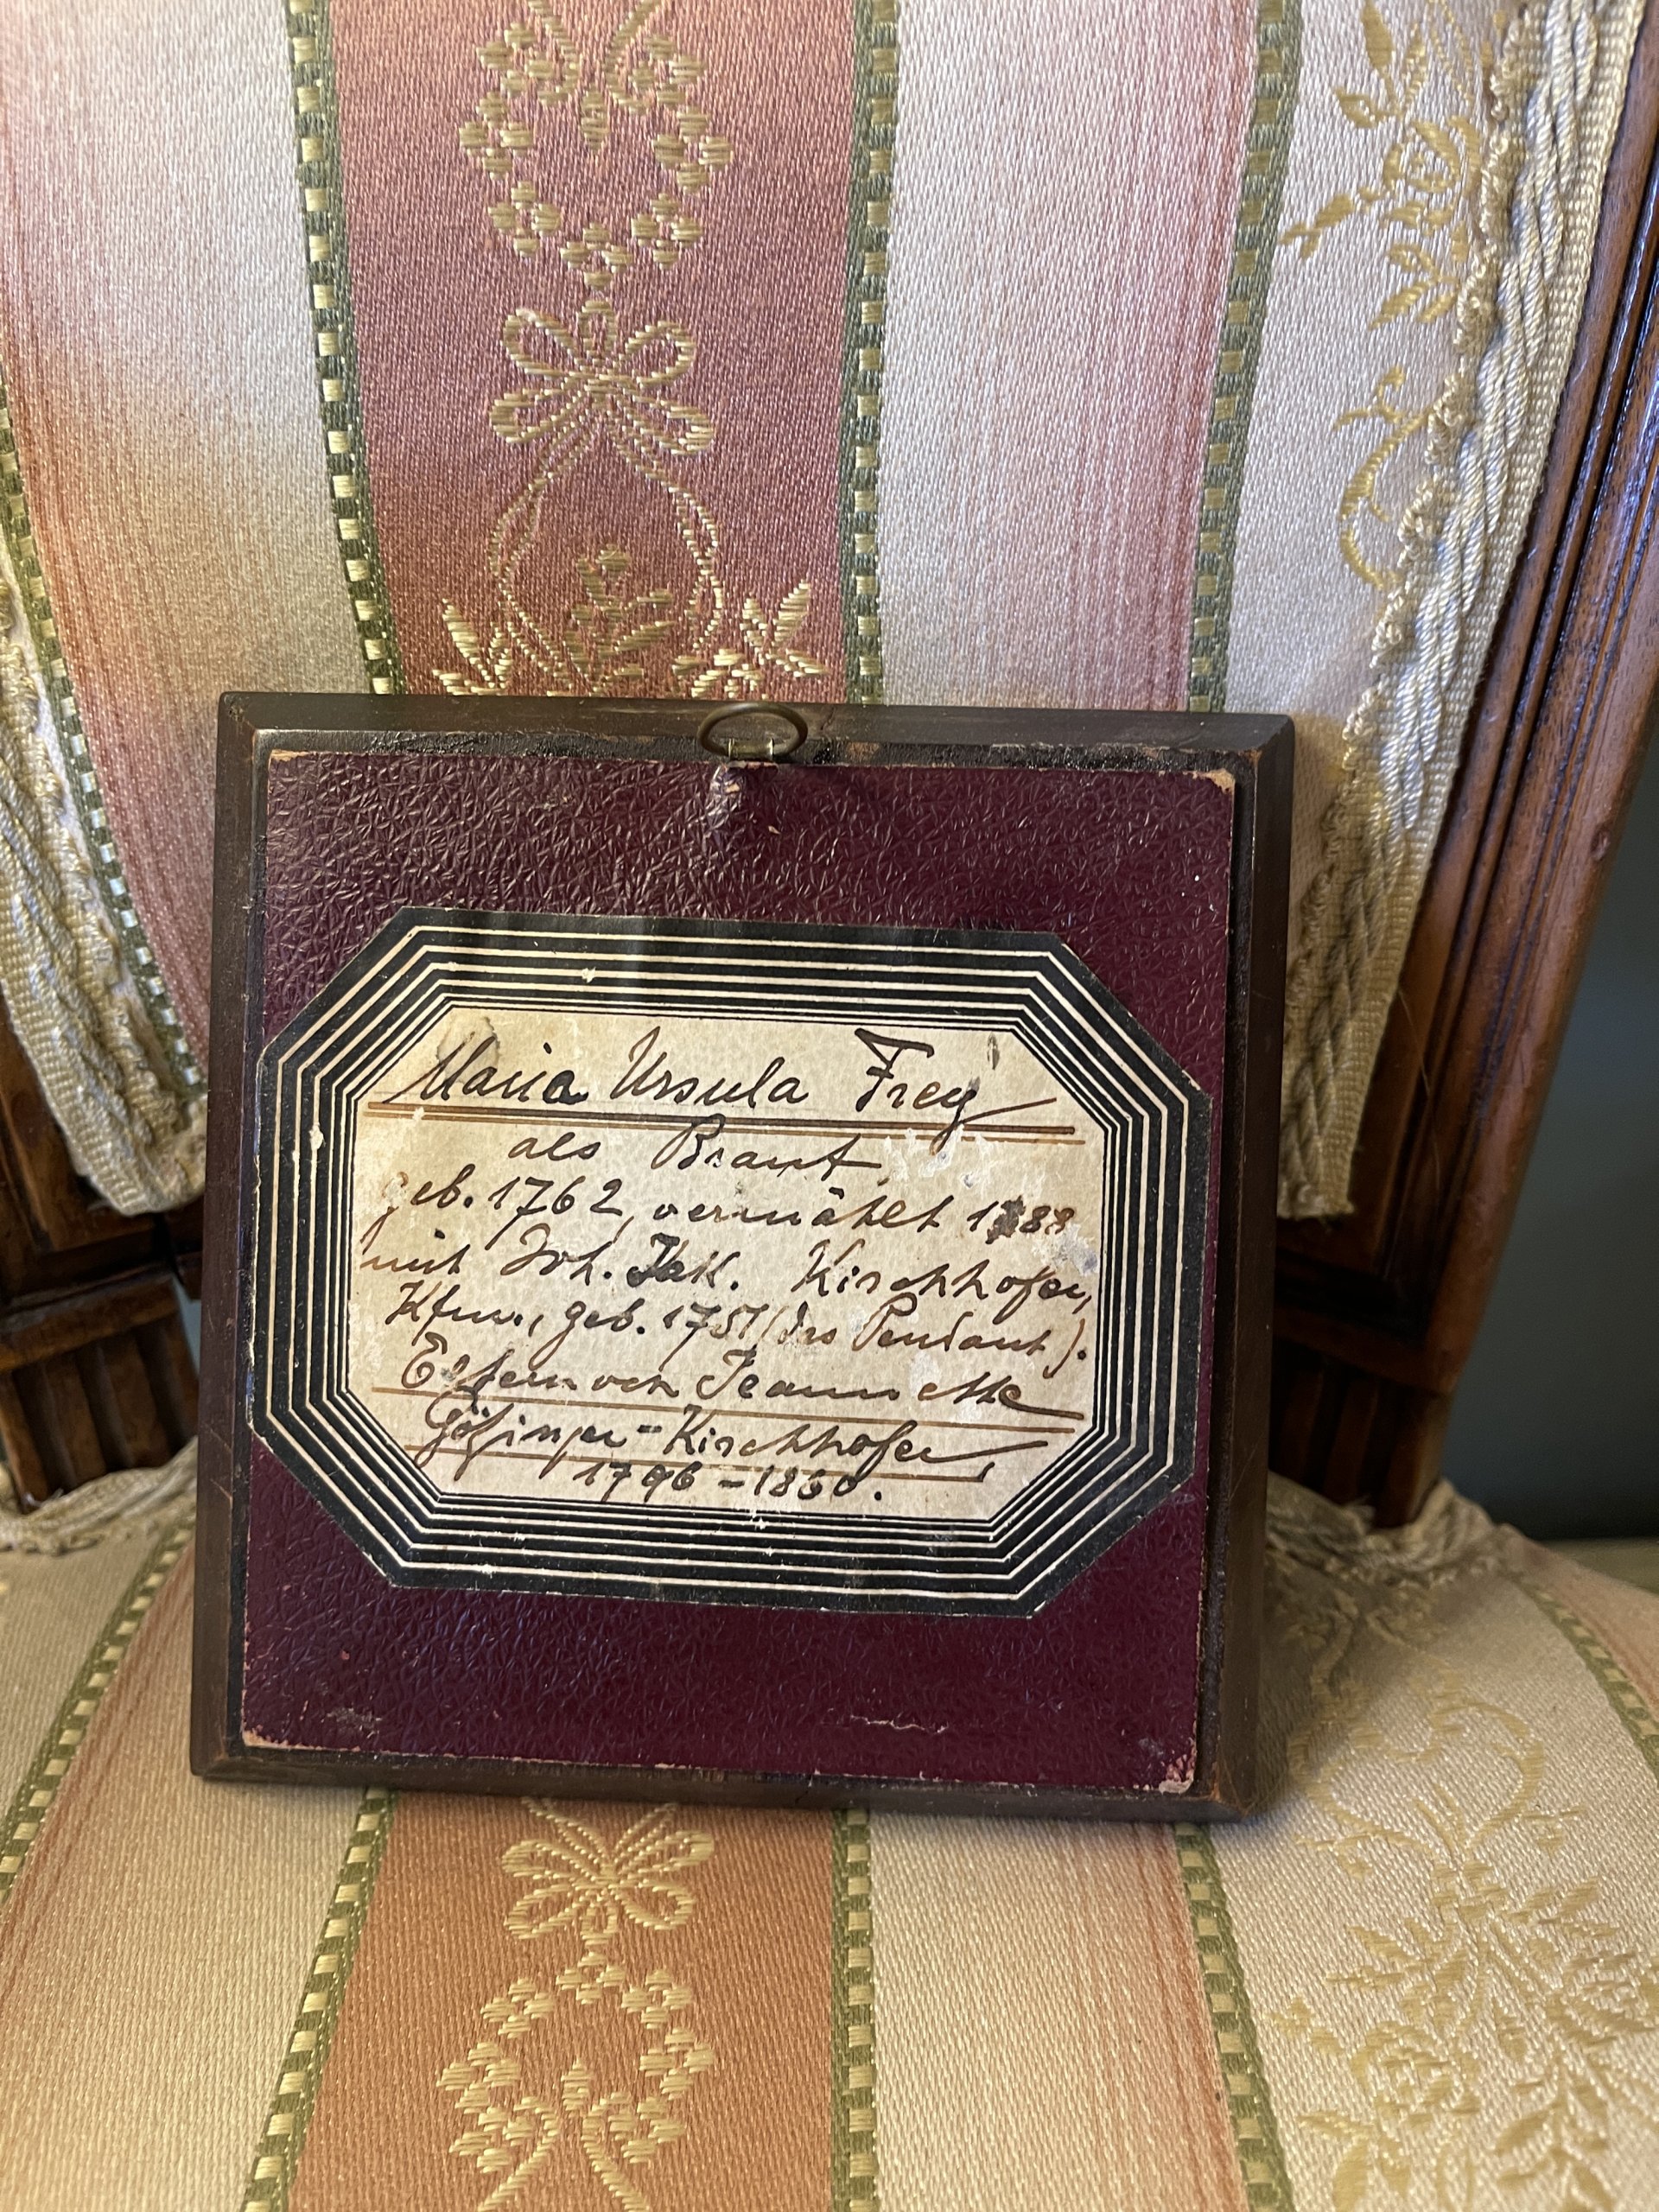 Maria Ursula Frey
als Braut
geb. 1762, vermählt 1788
mit Joh. Jak. Kirchhofer,
Kfm., geb. 1757 (das Pendant).
Eltern von Jeannette
Götzinger-Kirchhofer,
1796-1860.